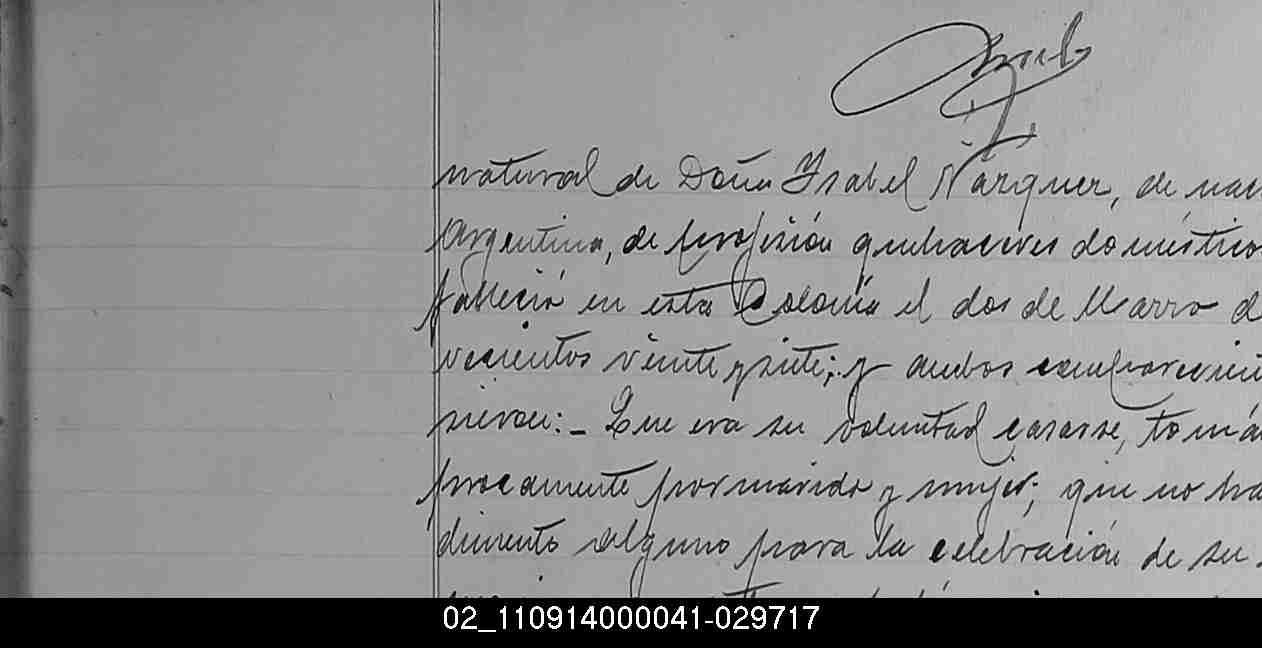 natural de Doña Ysabel Vázquez, de nac
Argentina, de profesión quehaceres doméstico
falleció en esta Colonia el dos de Marzo d
vecientos veinte y siete; y ambos comparecien
sieron:- Que era su voluntad casarse, tomán
procamente por marido y mujer; que no ha
dimento alguno para la celebración de su
02_110914000041-029717